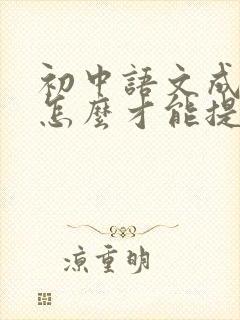 初中語文成
怎麼才能提
凉重明